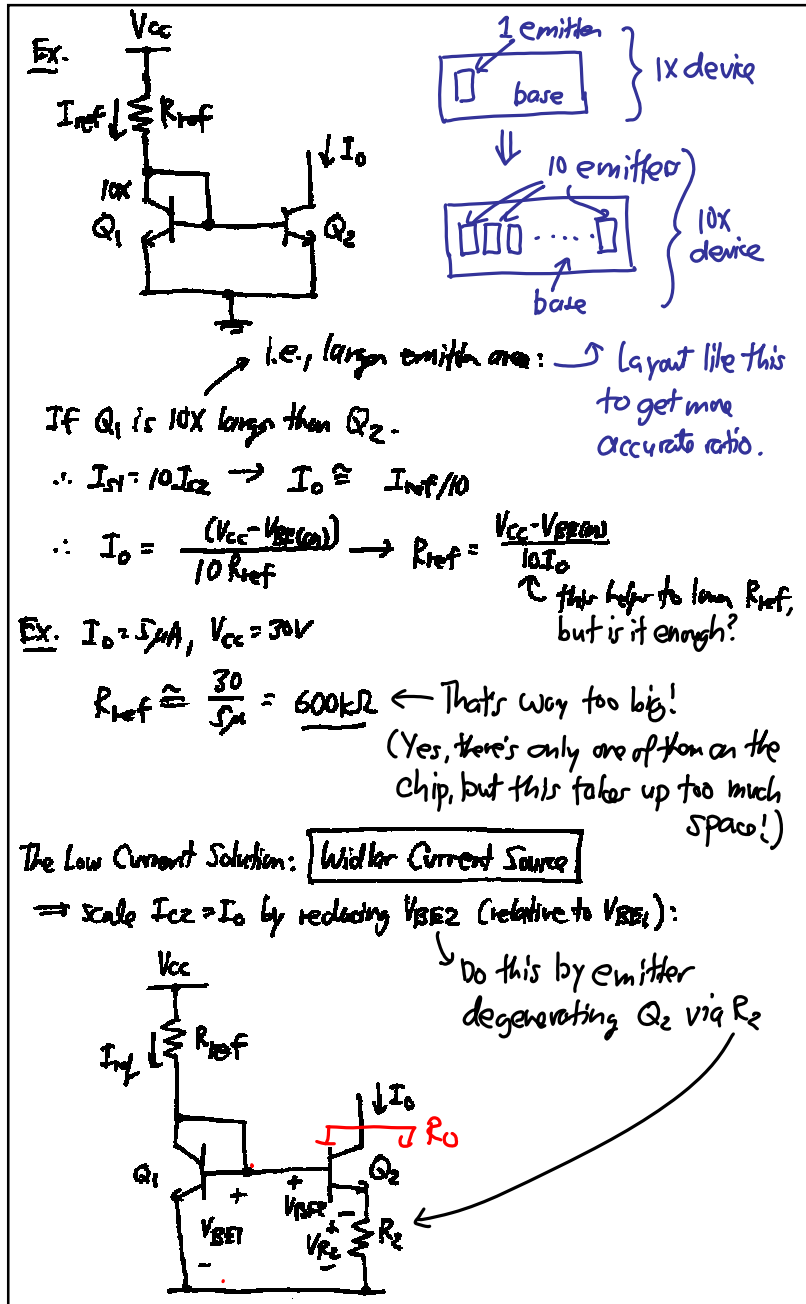 Ex.
Vcc
Iref ↓ Rref
↓ I₀
10X
Q₁
Q₂
1 emitter
base
} 1X device
⇓
10 emitters
. . . . .
base
} 10X device
i.e., larger emitter area: → Layout like this
to get more
accurate ratio.
If Q₁ is 10X larger than Q₂.
∴ I_S1 = 10I_S2 → I₀ ≅ Iref/10
∴ I₀ = (Vcc - VBE(on)) / 10 Rref → Rref = Vcc - VBE(on) / 10I₀
this helps to lower Rref,
but is it enough?
Ex. I₀ = 5μA, Vcc = 30V
Rref ≅ 30 / 5μ = 600kΩ ← That's way too big!
(Yes, there's only one of them on the
chip, but this takes up too much
space!)
The Low Current Solution: Widlar Current Source
⇒ scale I_C2 = I₀ by reducing V_BE2 (relative to V_BE1):
Do this by emitter
degenerating Q₂ via R₂
Vcc
Iref ↓ Rref
↓ I₀
R₀
Q₁
Q₂
+ V_BE1 -
+ V_BE2 -
+ V_R2 -
R₂